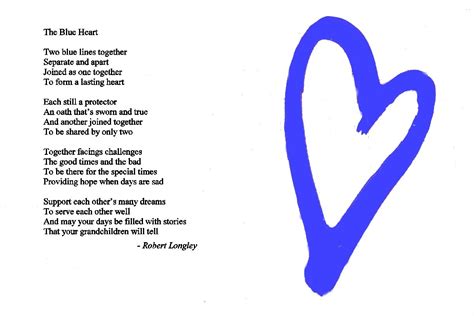 The Blue Heart
Two blue lines together
Separate and apart
Joined as one together
To form a lasting heart
Each still a protector
An oath that's sworn and true
And another joined together
To be shared by only two
Together facings challenges
The good times and the bad
To be there for the special times
Providing hope when days are sad
Support each other's many dreams
To serve each other well
And may your days be filled with stories
That your grandchildren will tell
- Robert Longley